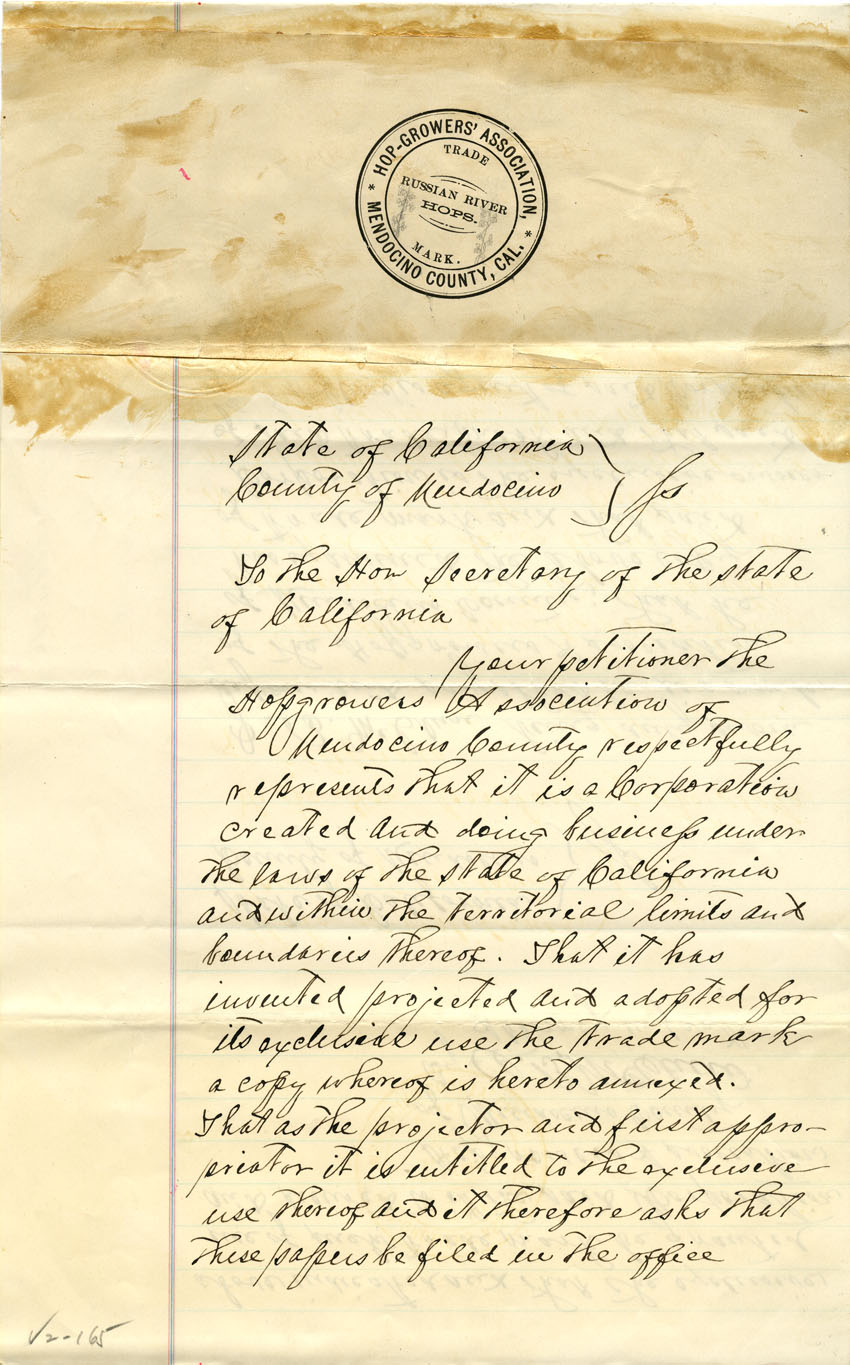 HOP-GROWERS' ASSOCIATION,
TRADE
RUSSIAN RIVER
HOPS.
MARK.
* MENDOCINO COUNTY, CAL. *
State of California
County of Mendocino } Ss
To the Hon Secretary of the state
of California
Your petitioner the
Hopgrowers Association of
Mendocino County respectfully
represents that it is a Corporation
created and doing business under
the laws of the state of California
and within the territorial limits and
boundaries thereof. That it has
invented projected and adopted for
its exclusive use the trade mark
a copy whereof is hereto annexed.
That as the projector and first appro-
priator it is entitled to the exclusive
use thereof and it therefore asks that
these papers be filed in the office
V2-165